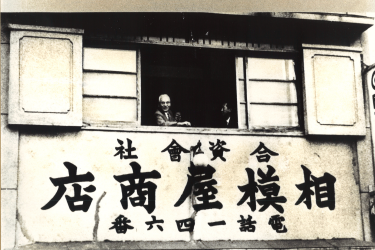 合資會社
相模屋商店
電話一四六番